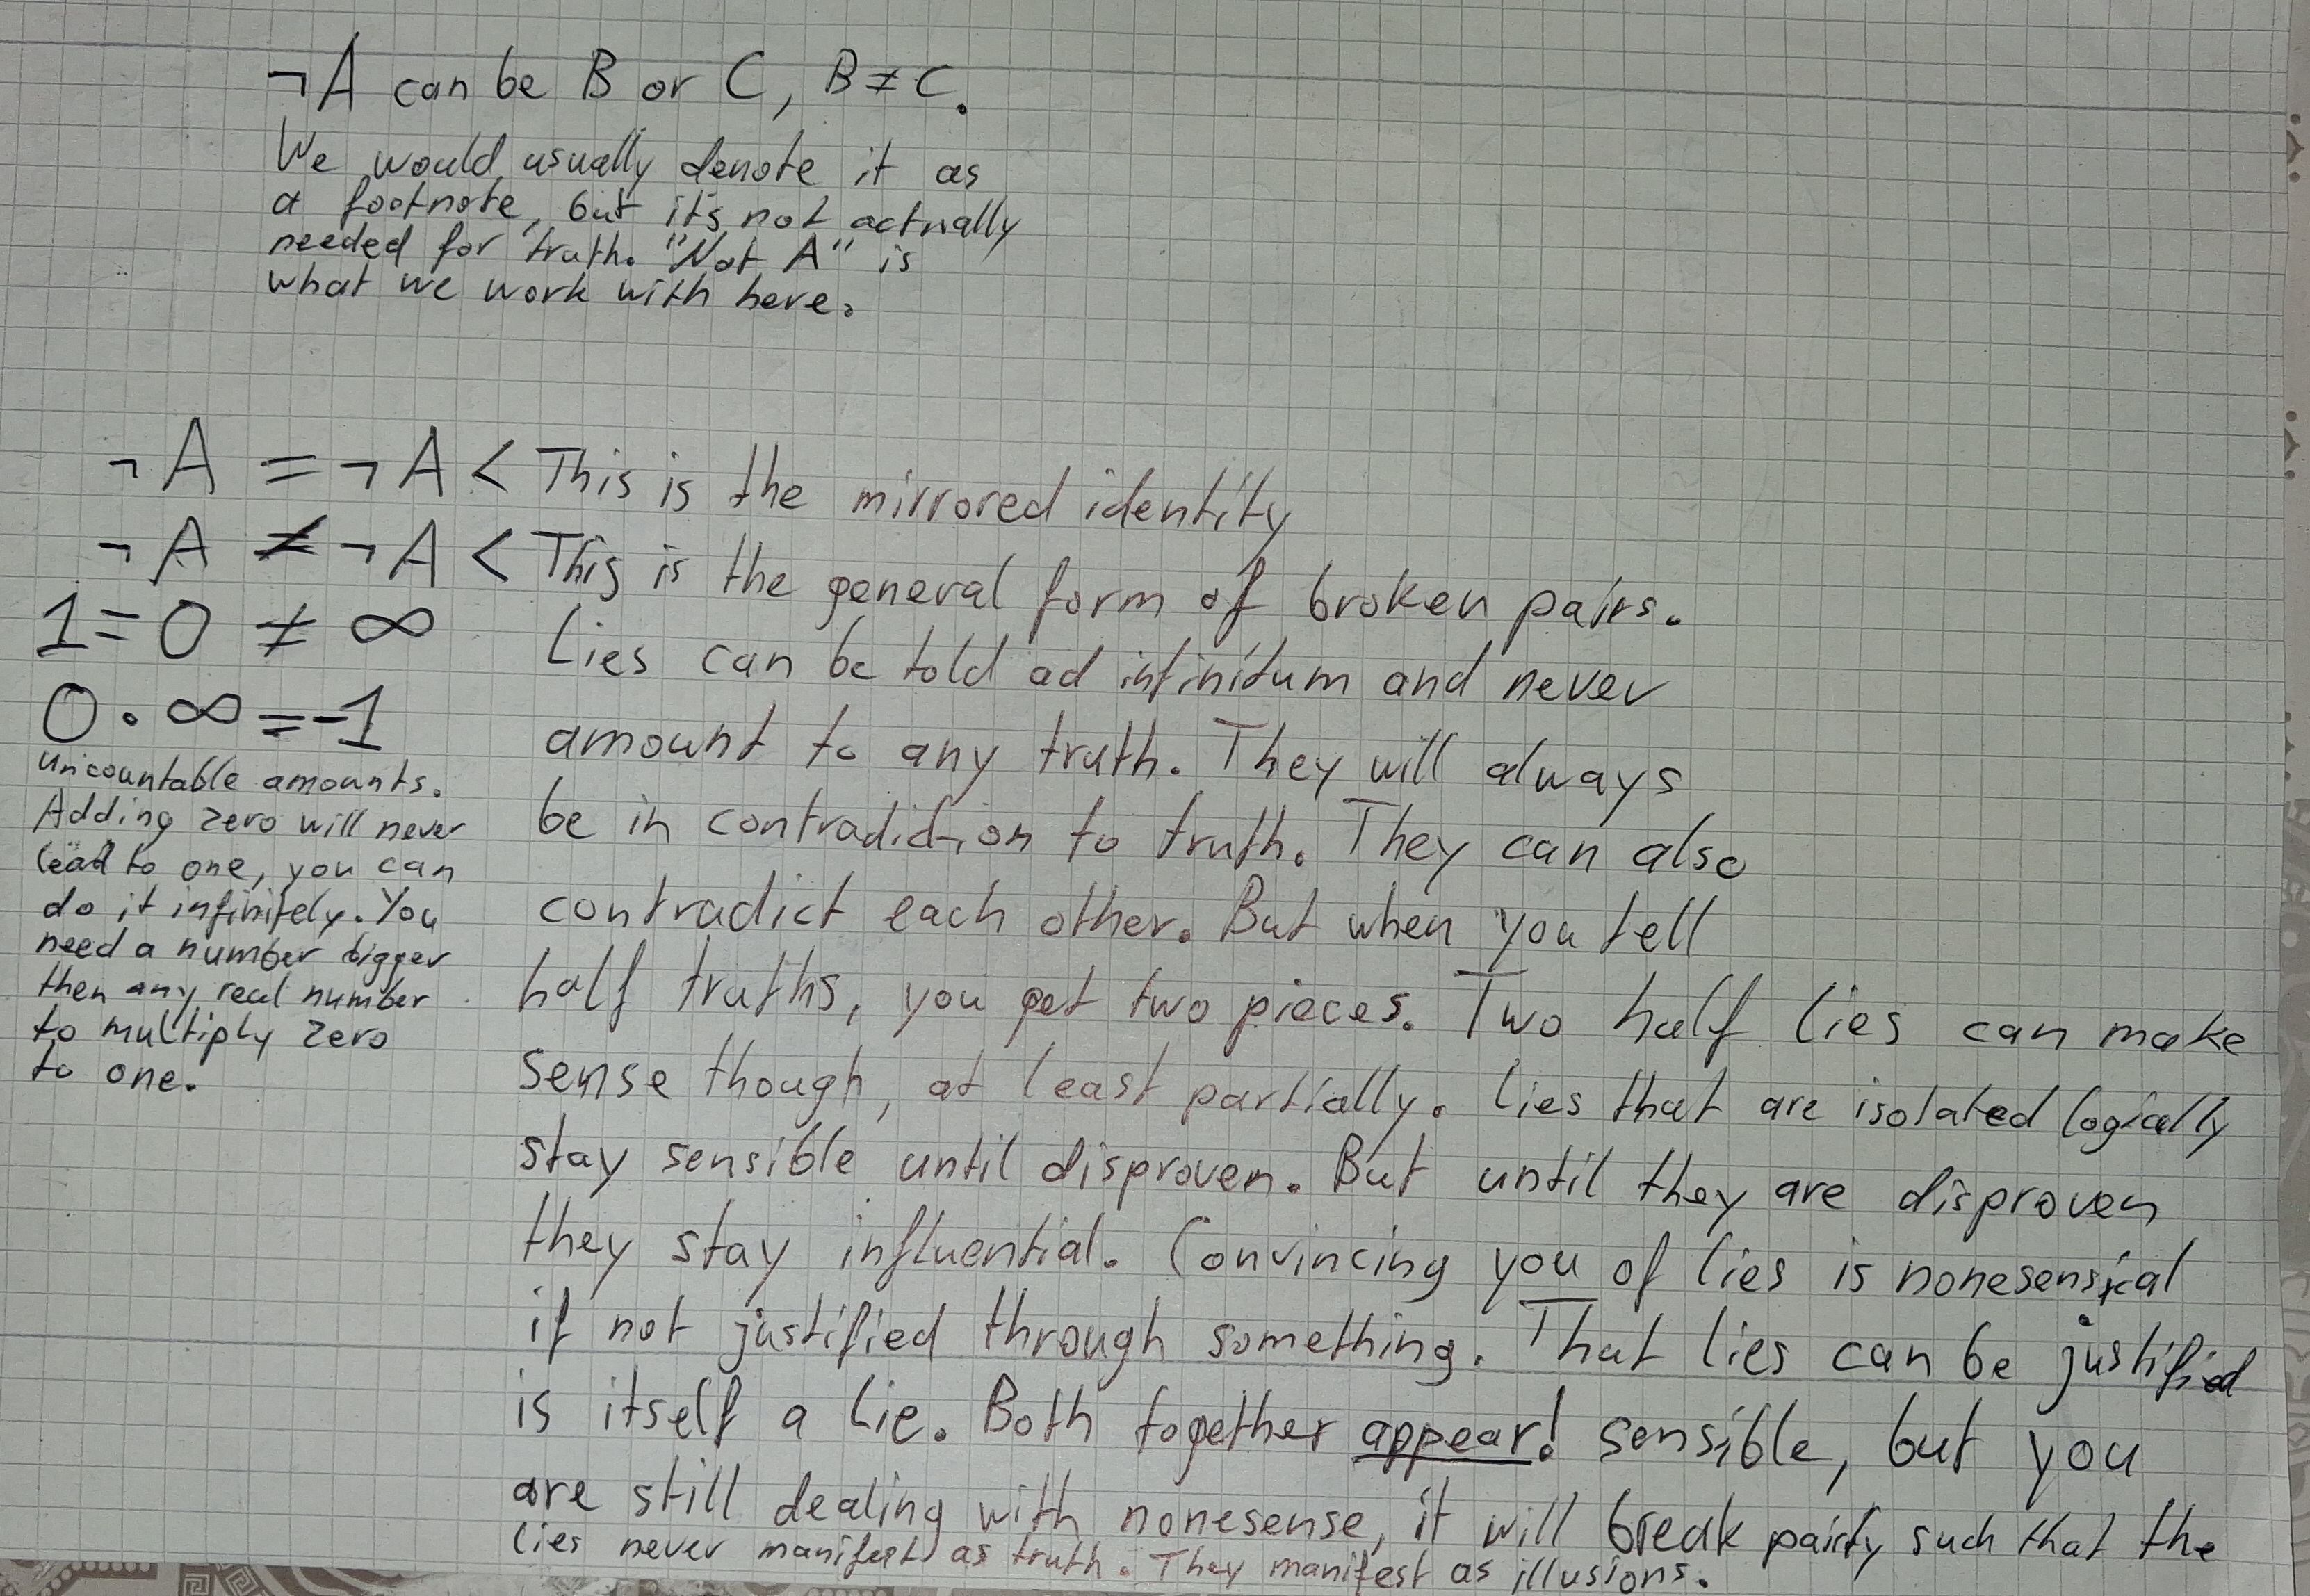 ¬A can be B or C, B≠C.
We would usually denote it as
a footnote, but it's not actually
needed for truth. "Not A" is
what we work with here.
¬A = ¬A < This is the mirrored identity
¬A ≠ ¬A < This is the general form of broken pairs.
1=0 ≠ ∞
0·∞=-1
uncountable amounts.
Adding zero will never
lead to one, you can
do it infinitely. You
need a number bigger
then any real number
to multiply zero
to one.
Lies can be told ad infinitum and never
amount to any truth. They will always
be in contradiction to truth. They can also
contradict each other. But when you tell
half truths, you get two pieces. Two half lies can make
sense though, at least partially. Lies that are isolated logically
stay sensible until disproven. But until they are disproven
they stay influential. Convincing you of lies is nonesensical
if not justified through something. That lies can be justified
is itself a lie. Both together appear! sensible, but you
are still dealing with nonesense, it will break pairity such that the
lies never manifest as truth. They manifest as illusions.